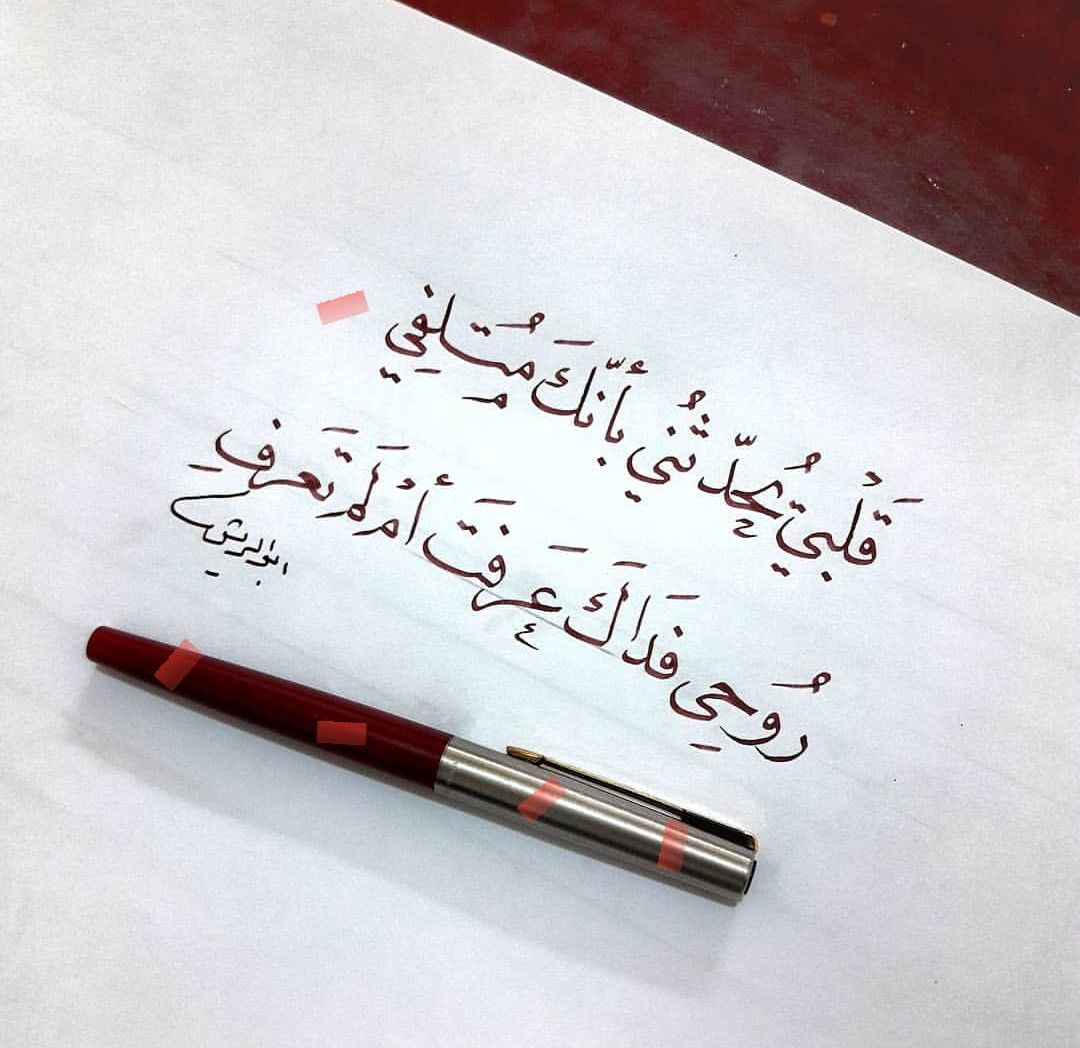 قَلْبي يُحدّثُني بأنّكَ مُتلفِي
رُوحِي فَداكَ عَرفتَ أمْ لَمْ تَعرفِ